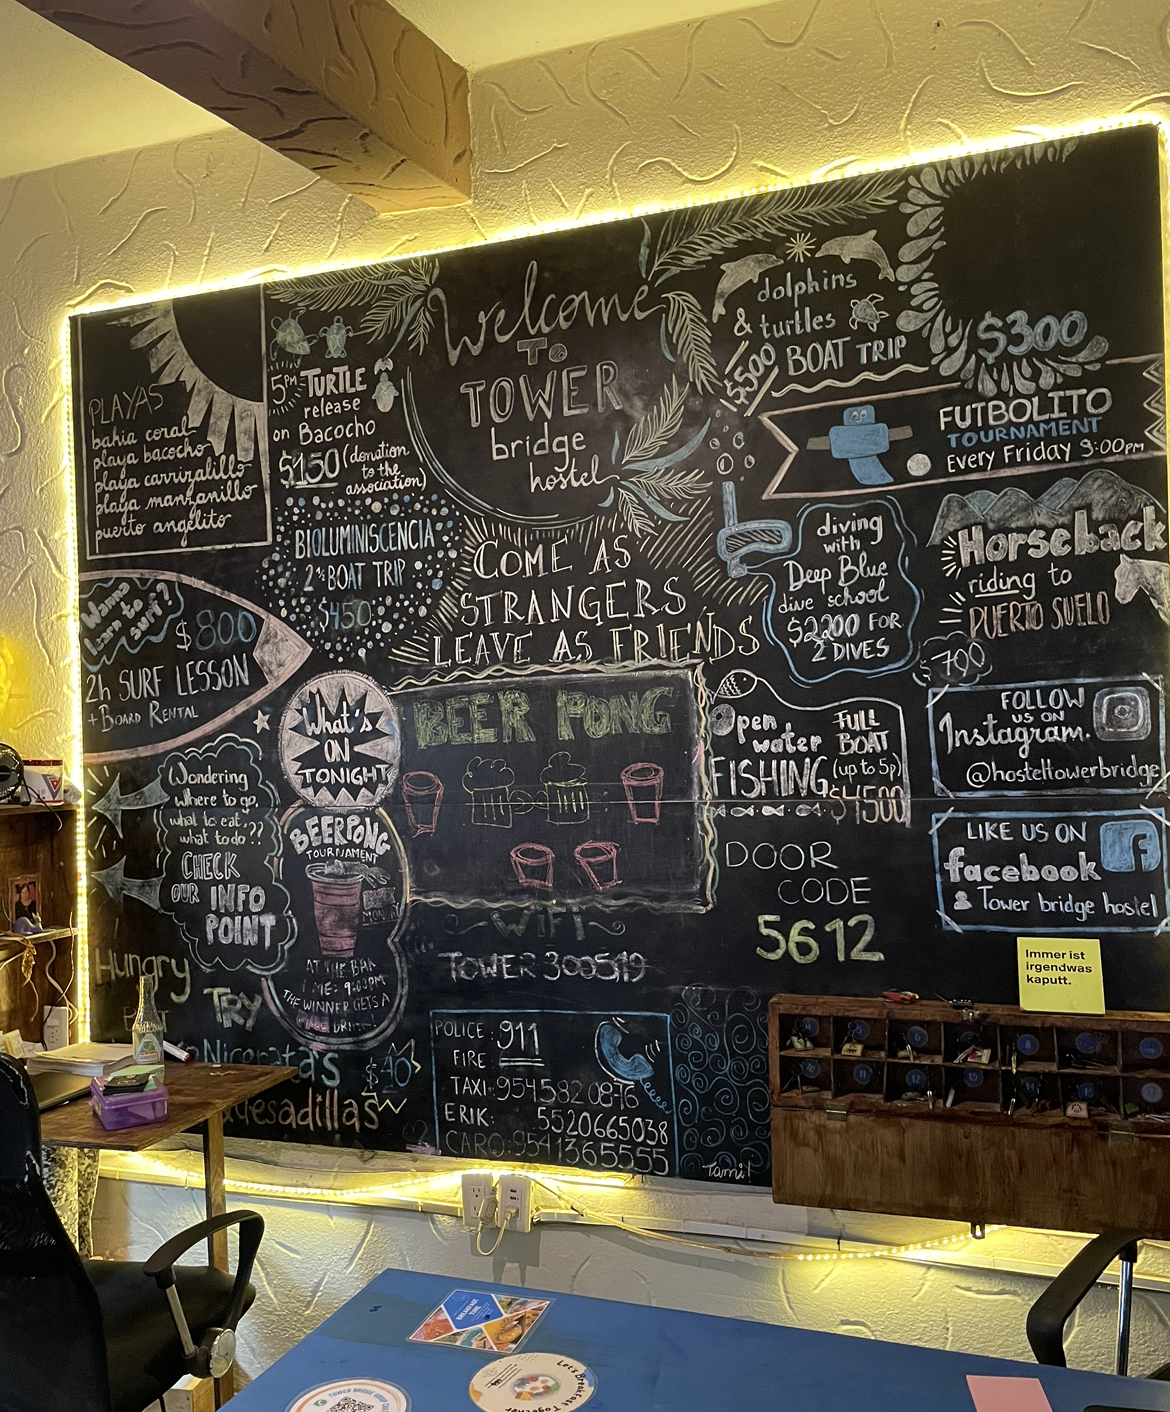 PLAYAS
bahia coral
playa bacocho
playa carrizalillo
playa manzanillo
puerto angelito
5PM TURTLE
release
on Bacocho
$150 (donation
to the
association)
BIOLUMINISCENCIA
BOAT TRIP
$450
Welcome
TO
TOWER
bridge
hostel
COME AS
STRANGERS
LEAVE AS FRIENDS
dolphins
& turtles
BOAT TRIP
$500
$300
FUTBOLITO
TOURNAMENT
Every Friday 9:00pm
diving
with
Deep Blue
dive school
$2200 FOR
2 DIVES
Horseback
riding to
PUERTO SUELO
$700
Wanna
learn to
surf?
$800
2h SURF LESSON
+ BOARD RENTAL
What's
ON
TONIGHT
BEERPONG
TOURNAMENT
AT THE BAR
TIME: 9:00PM
THE WINNER GETS A
BEER PONG
Open
water
FISHING
FULL
BOAT
(up to 5p)
$4500
FOLLOW
US ON
Instagram.
@hosteltowerbridge
LIKE US ON
facebook
Tower bridge hostel
Wondering
where to go,
what to eat,
what to do??
CHECK
OUR INFO
POINT
WIFI
TOWER 300519
DOOR
CODE
5612
Immer ist
irgendwas
kaputt.
Hungry
TRY
Nicorata's $40
quesadillas
POLICE: 911
FIRE:
TAXI: 954 582 0876
ERIK: 5520665038
CARO: 9541365555
Tamil
BREAKFAST
TIME
Let's Breakfast
Together